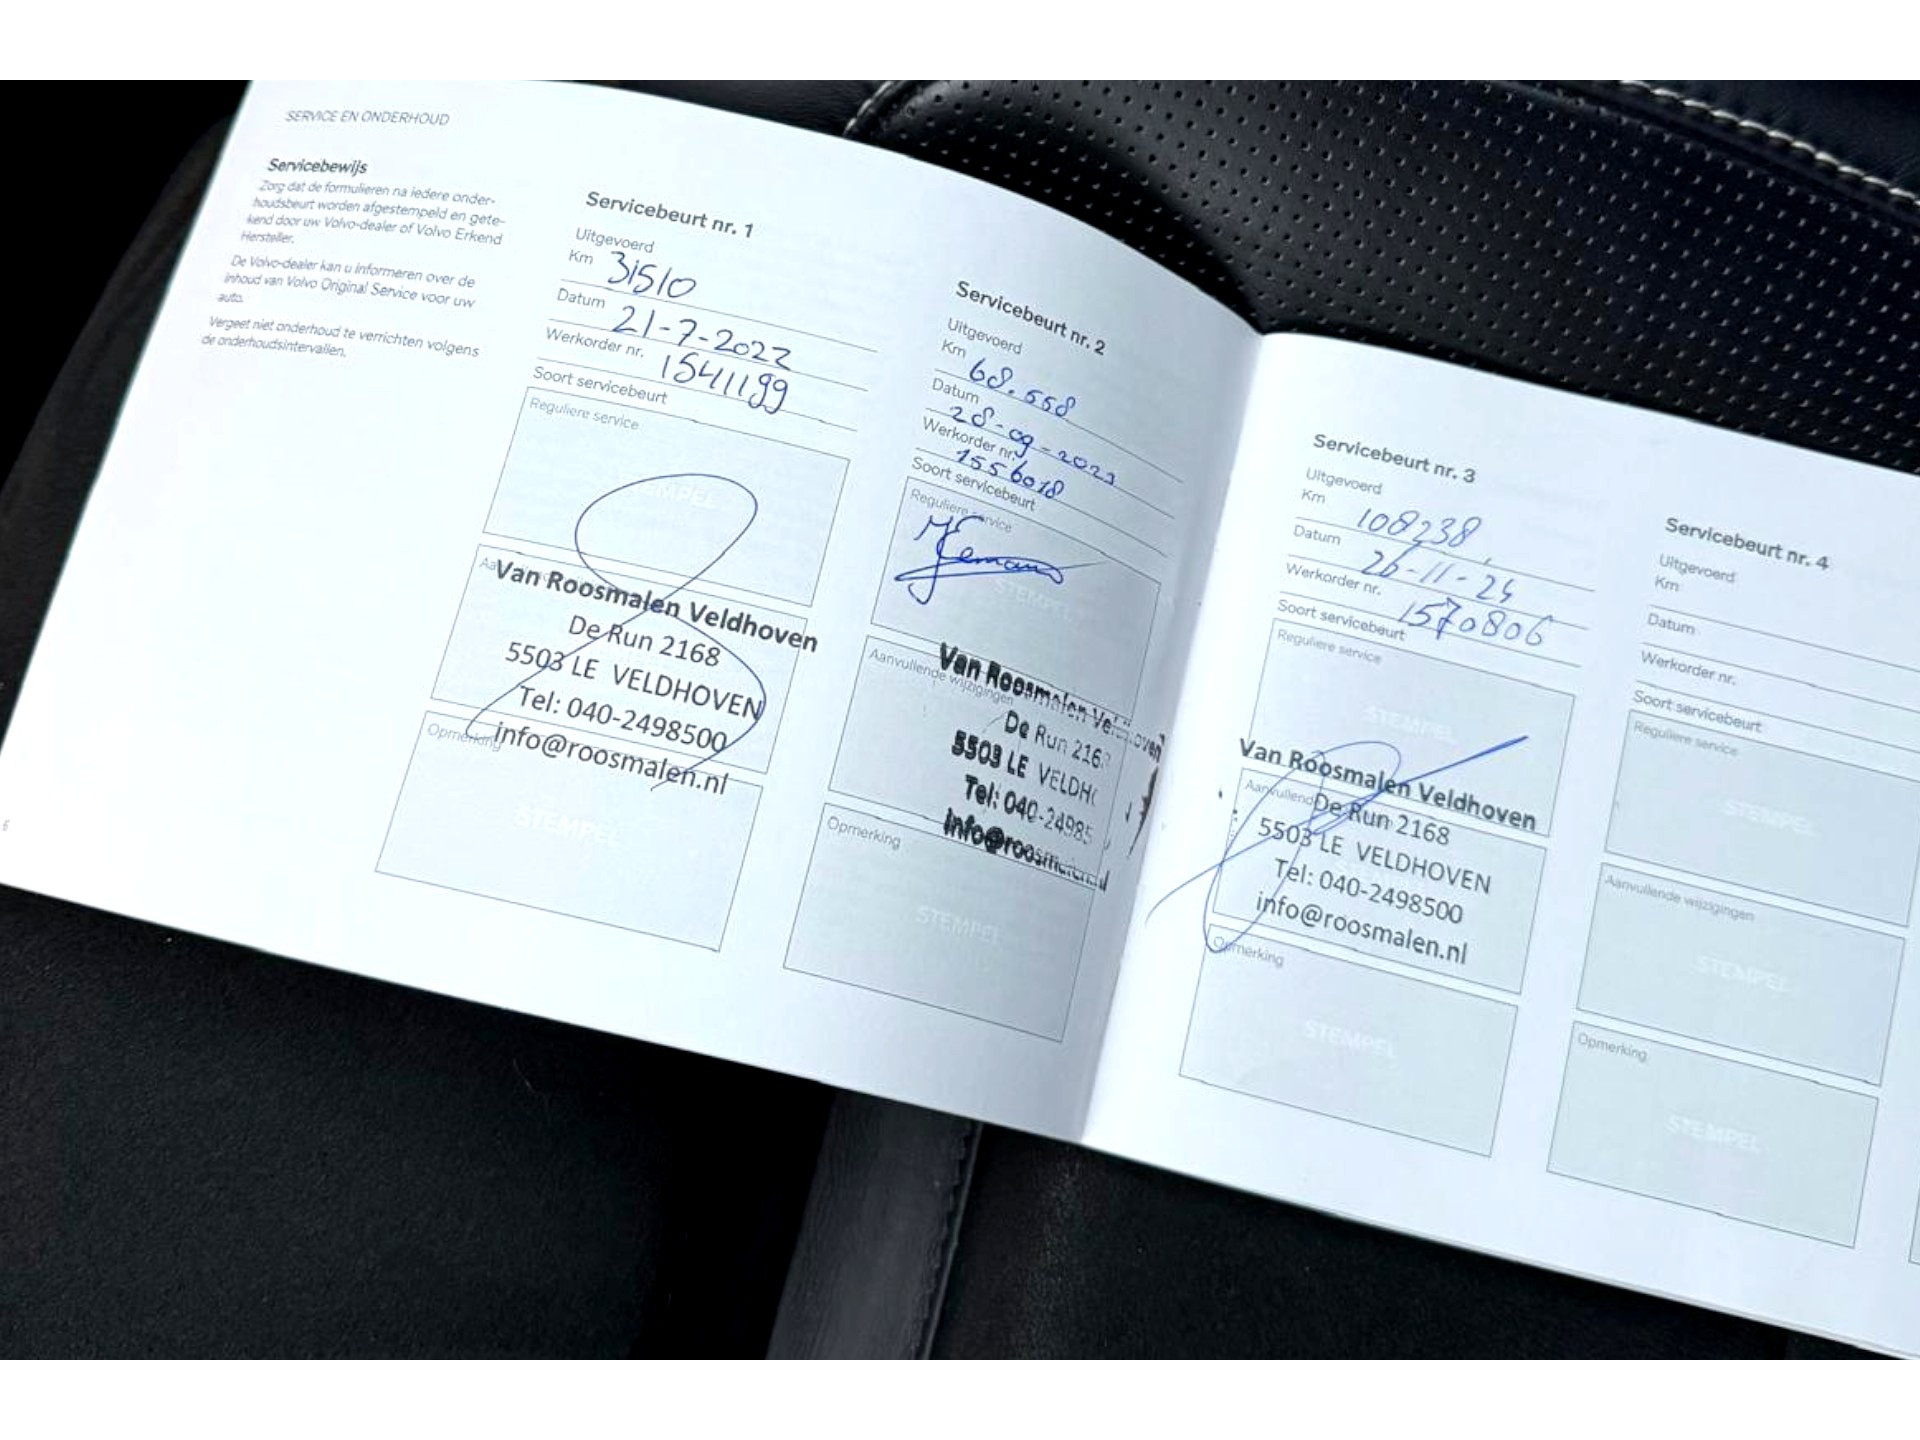 SERVICE EN ONDERHOUD
Servicebewijs
Zorg dat de formulieren na iedere onder-
houdsbeurt worden afgestempeld en gete-
kend door uw Volvo-dealer of Volvo Erkend
Hersteller.
De Volvo-dealer kan u informeren over de
inhoud van Volvo Original Service voor uw
auto.
Vergeet niet onderhoud te verrichten volgens
de onderhoudsintervallen.
6
Servicebeurt nr. 1
Uitgevoerd
Km 31510
Datum 21-7-2022
Werkorder nr. 1541199
Soort servicebeurt
Reguliere service
STEMPEL
Van Roosmalen Veldhoven
De Run 2168
5503 LE VELDHOVEN
Tel: 040-2498500
Opmerking
info@roosmalen.nl
STEMPEL
Servicebeurt nr. 2
Uitgevoerd
Km 68.558
Datum 28-09-2023
Werkorder nr. 1556018
Soort servicebeurt
Reguliere service
STEMPEL
Aanvullende wijzigingen
Van Roosmalen Veldhoven
De Run 216
5503 LE VELDHO
Tel: 040-24985
info@roosmalen.nl
Opmerking
STEMPEL
Servicebeurt nr. 3
Uitgevoerd
Km 108238
Datum 26-11-24
Werkorder nr. 1570806
Soort servicebeurt
Reguliere service
STEMPEL
Van Roosmalen Veldhoven
Aanvullend
De Run 2168
5503 LE VELDHOVEN
Tel: 040-2498500
info@roosmalen.nl
Opmerking
STEMPEL
Servicebeurt nr. 4
Uitgevoerd
Km
Datum
Werkorder nr.
Soort servicebeurt
Reguliere service
STEMPEL
Aanvullende wijzigingen
STEMPEL
Opmerking
STEMPEL